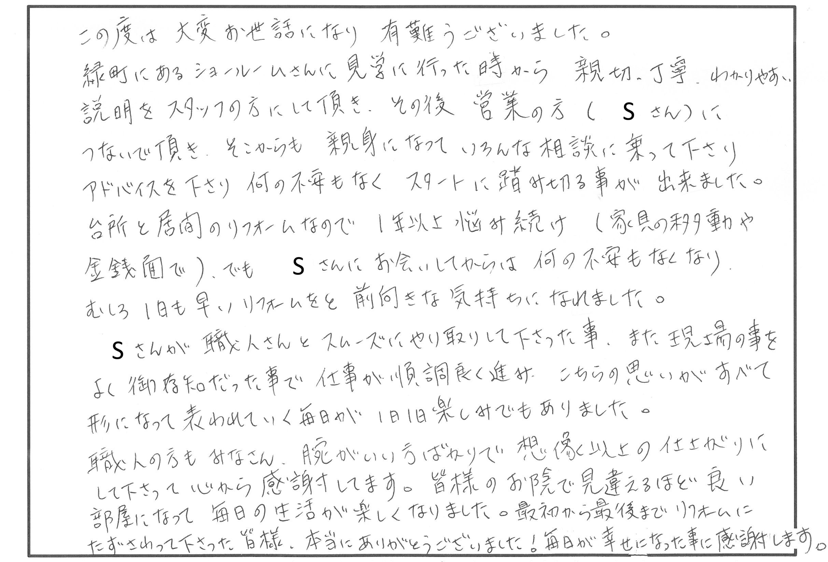 この度は 大変お世話になり 有難うございました。
緑町にあるショールームさんに見学に行った時から 親切、丁寧、わかりやすい
説明をスタッフの方にして頂き、その後 営業の方（ Sさん）に
つないで頂き、そこからも 親身になって いろんな相談に乗って下さり
アドバイスを下さり 何の不安もなく スタートに踏み切る事が 出来ました。
台所と居間のリフォームなので 1年以上悩み続け（家具の移動や
金銭面で）、でも Sさんにお会いしてからは 何の不安もなくなり、
むしろ1日も早いリフォームをと 前向きな気持ちになれました。
Sさんが 職人さんとスムーズにやり取りして下さった事、また現場の事を
よく御存知だった事で 仕事が順調良く進み こちらの思いがすべて
形になって表われていく毎日が 1日1日楽しみでもありました。
職人の方もみなさん、腕がいい方ばかりで 想像以上の仕上がりに
して下さって心から感謝してます。皆様のお陰で見違えるほど良い
部屋になって 毎日の生活が楽しくなりました。最初から最後までリフォームに
たずさわって下さった皆様、本当にありがとうございました！毎日が幸せになった事に感謝します。